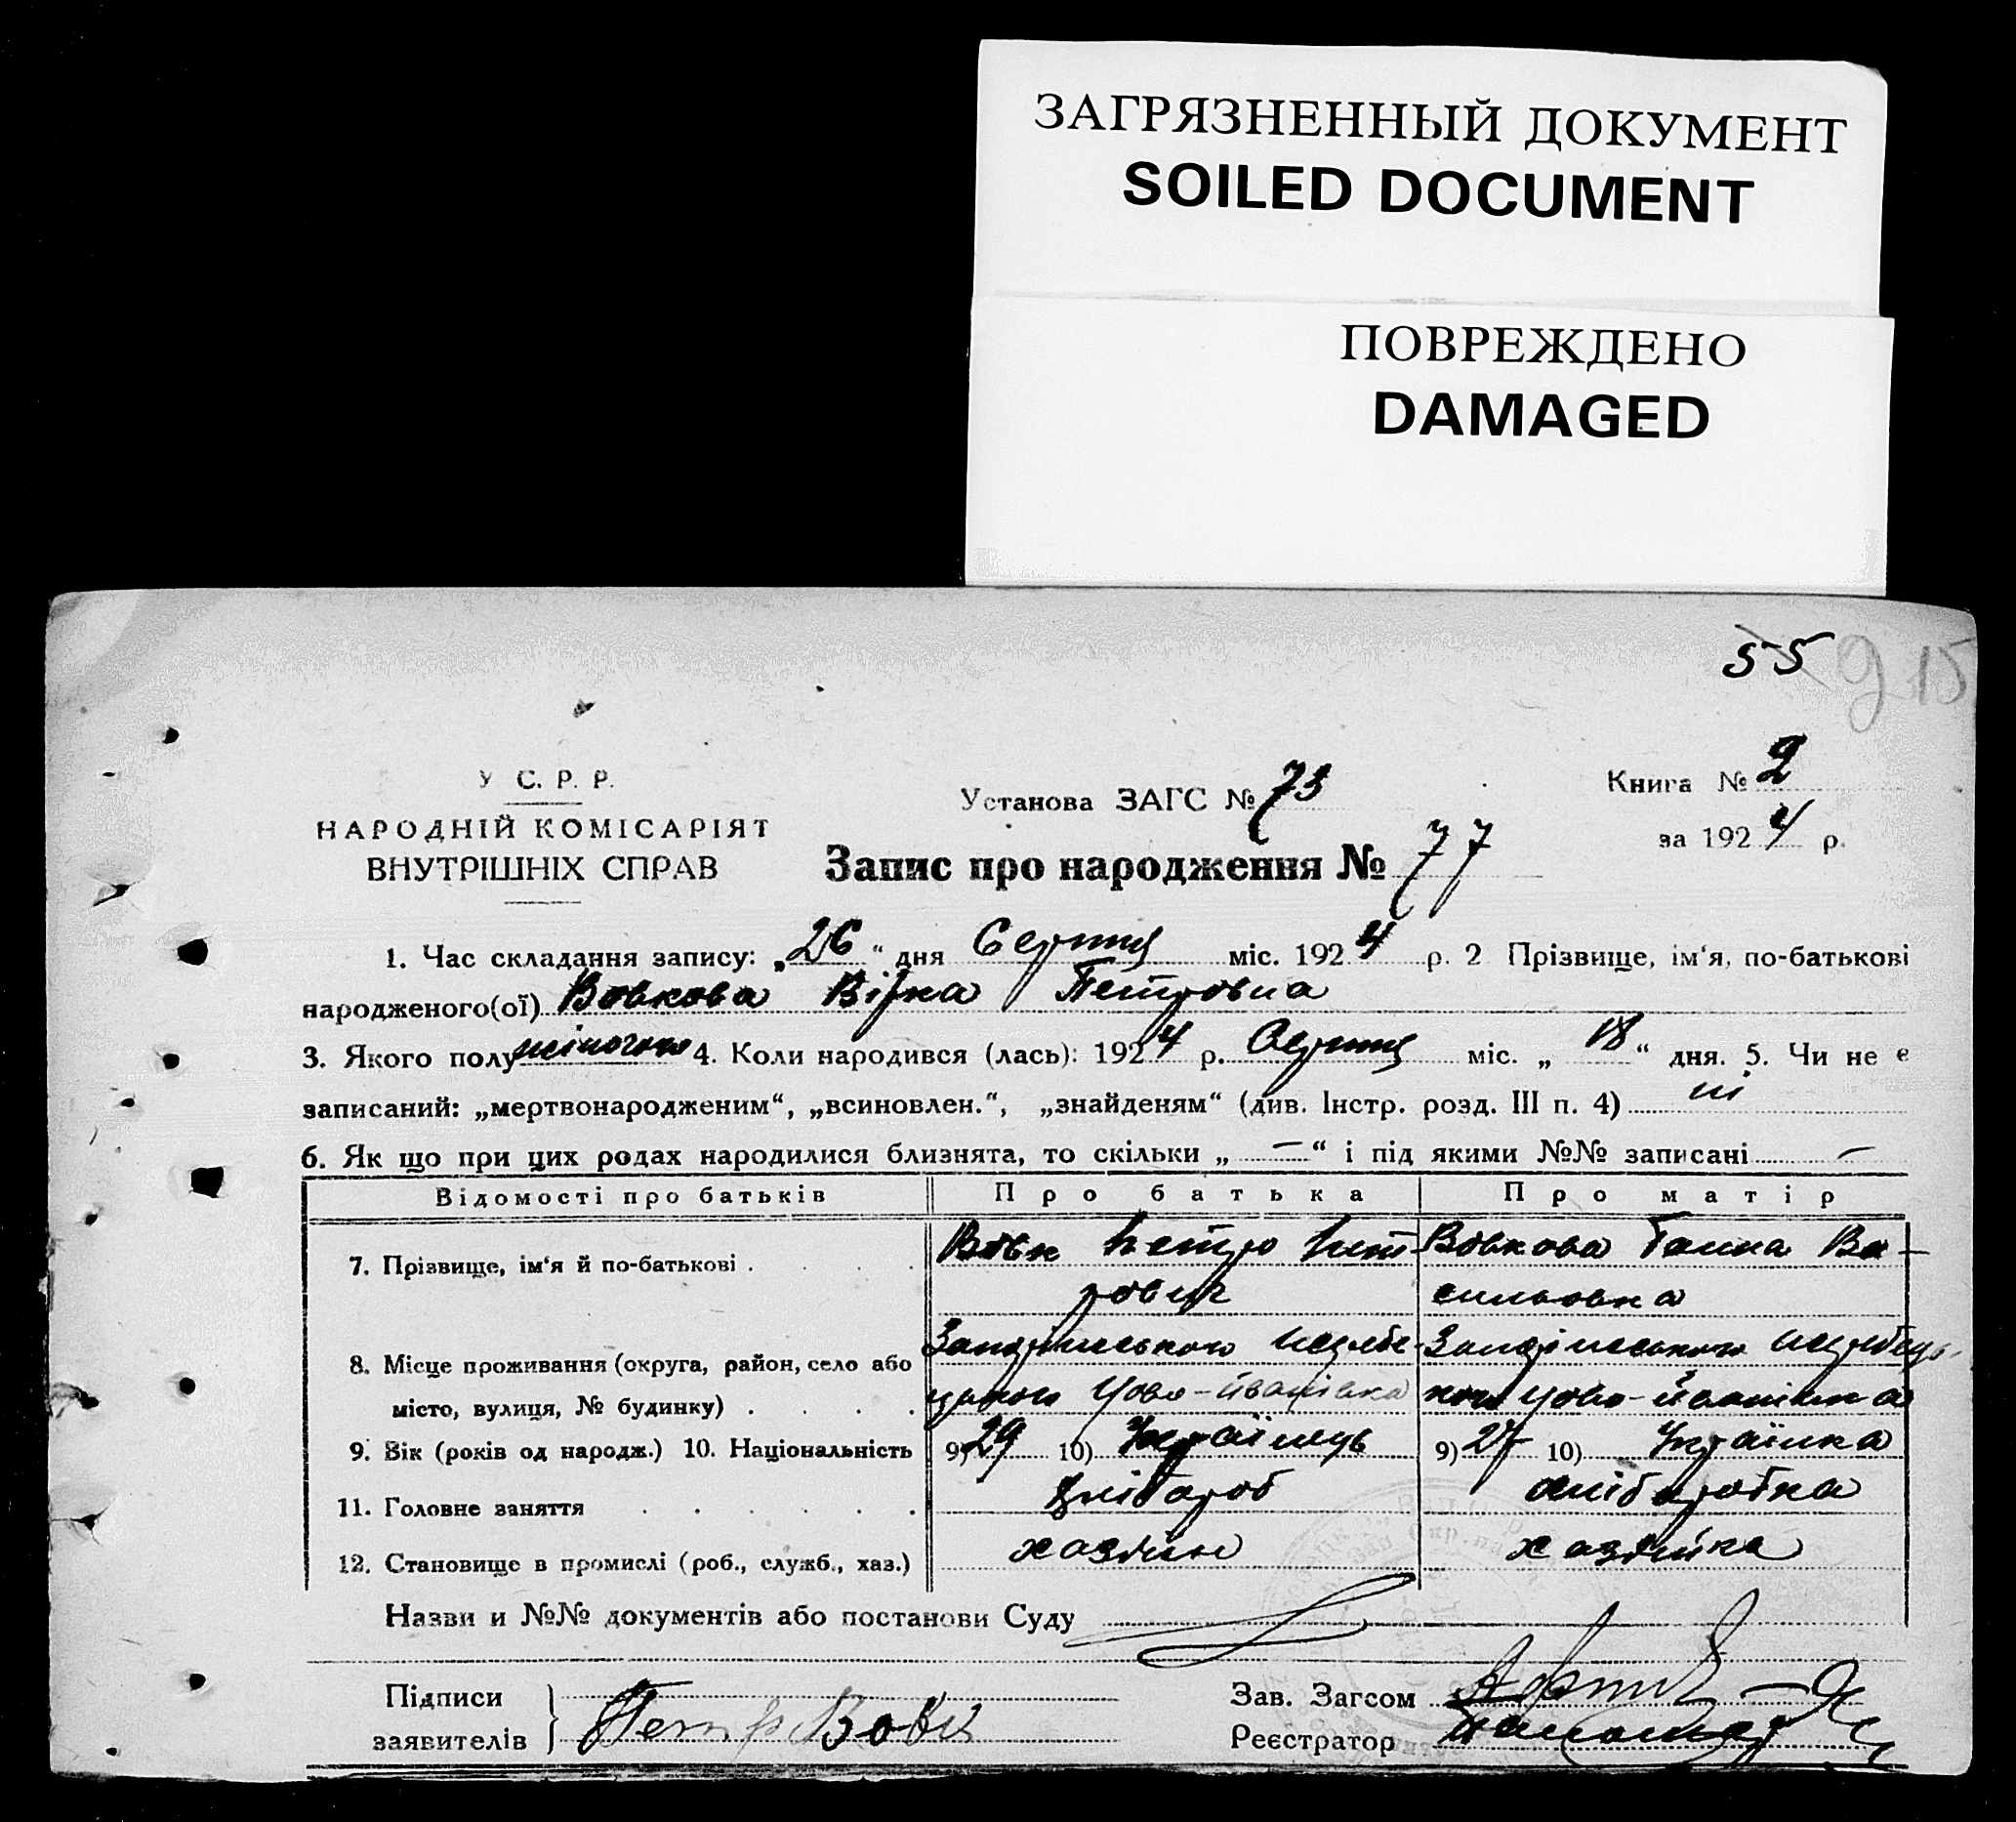 ЗАГРЯЗНЕННЫЙ ДОКУМЕНТ
SOILED DOCUMENT
ПОВРЕЖДЕНО
DAMAGED
55 9 15
У С. Р. Р.
НАРОДНІЙ КОМІСАРІЯТ
ВНУТРІШНІХ СПРАВ
Установа ЗАГС № 73
Книга № 2
за 1924 р.
Запис про народження № 77
1. Час складання запису: „26“ дня Серпня міс. 1924 р. 2 Прізвище, ім‘я, по-батькові
народженого(ої) Вовкова Вірка Петровна
3. Якого полу жіночого 4. Коли народився (лась): 1924 р. Серпня міс. „18“ дня. 5. Чи не є
записаний: „мертвонародженим“, „всиновлен.“, „знайденям“ (див. Інстр. розд. III п. 4) ні
6. Як що при цих родах народилися близнята, то скільки „ — “ і під якими №№ записані —
Відомості про батьків Про батька Про матір
7. Прізвище, ім‘я й по-батькові . . . . Вовк Петро Пет- Вовкова Ганна Ва-
рович сильовна
8. Місце проживання (округа, район, село або Запоріжського Запоріжського
місто, вулиця, № будинку) . . . . Ново-Йванівка Ново-Йванівка
9. Вік (років од народж.) 10. Національність 9) 29 10) Українець 9) 27 10) Українка
11. Головне заняття . . . . . . Хлібороб Хліборобка
12. Становище в промислі (роб., служб., хаз.) хозяїн хозяйка
Назви и №№ документів або постанови Суду
Підписи
заявителів } Петр Вовк
Зав. Загсом
Реєстратор